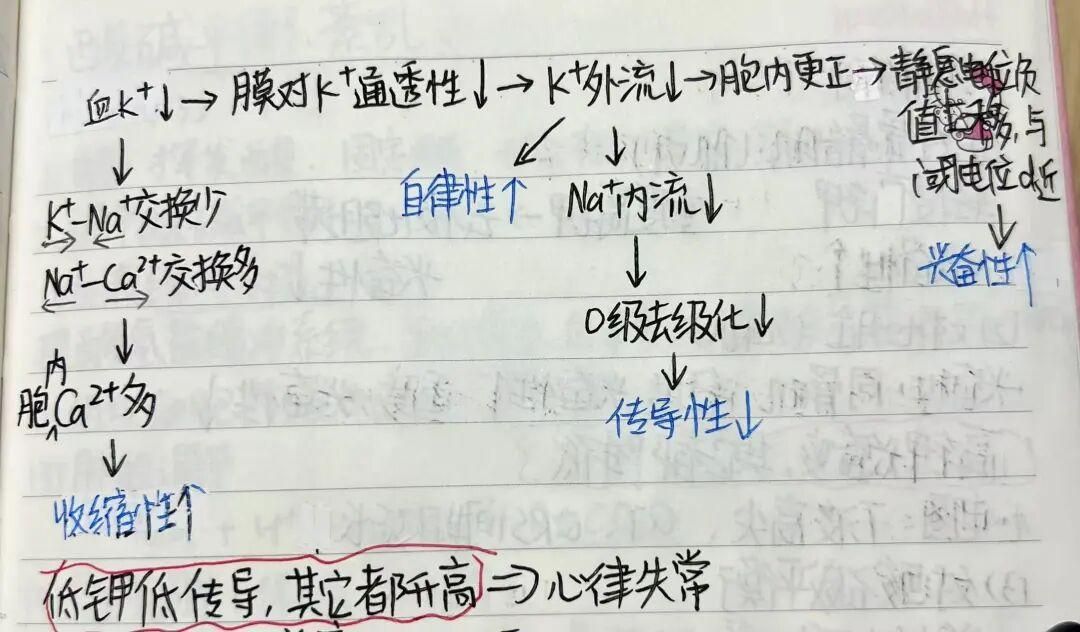 血K⁺↓→膜对K⁺通透性↓→K⁺外流↓→胞内更正→静息电位负
值上移,与
阈电位d近
↓
兴奋性↑
↙
自律性↑
↓
Na⁺内流↓
↓
0级去级化↓
↓
传导性↓
↓
K⁺-Na⁺交换少
Na⁺-Ca²⁺交换多
↓
胞内Ca²⁺多
↓
收缩性↑
低钾低传导,其它都升高⇒心律失常